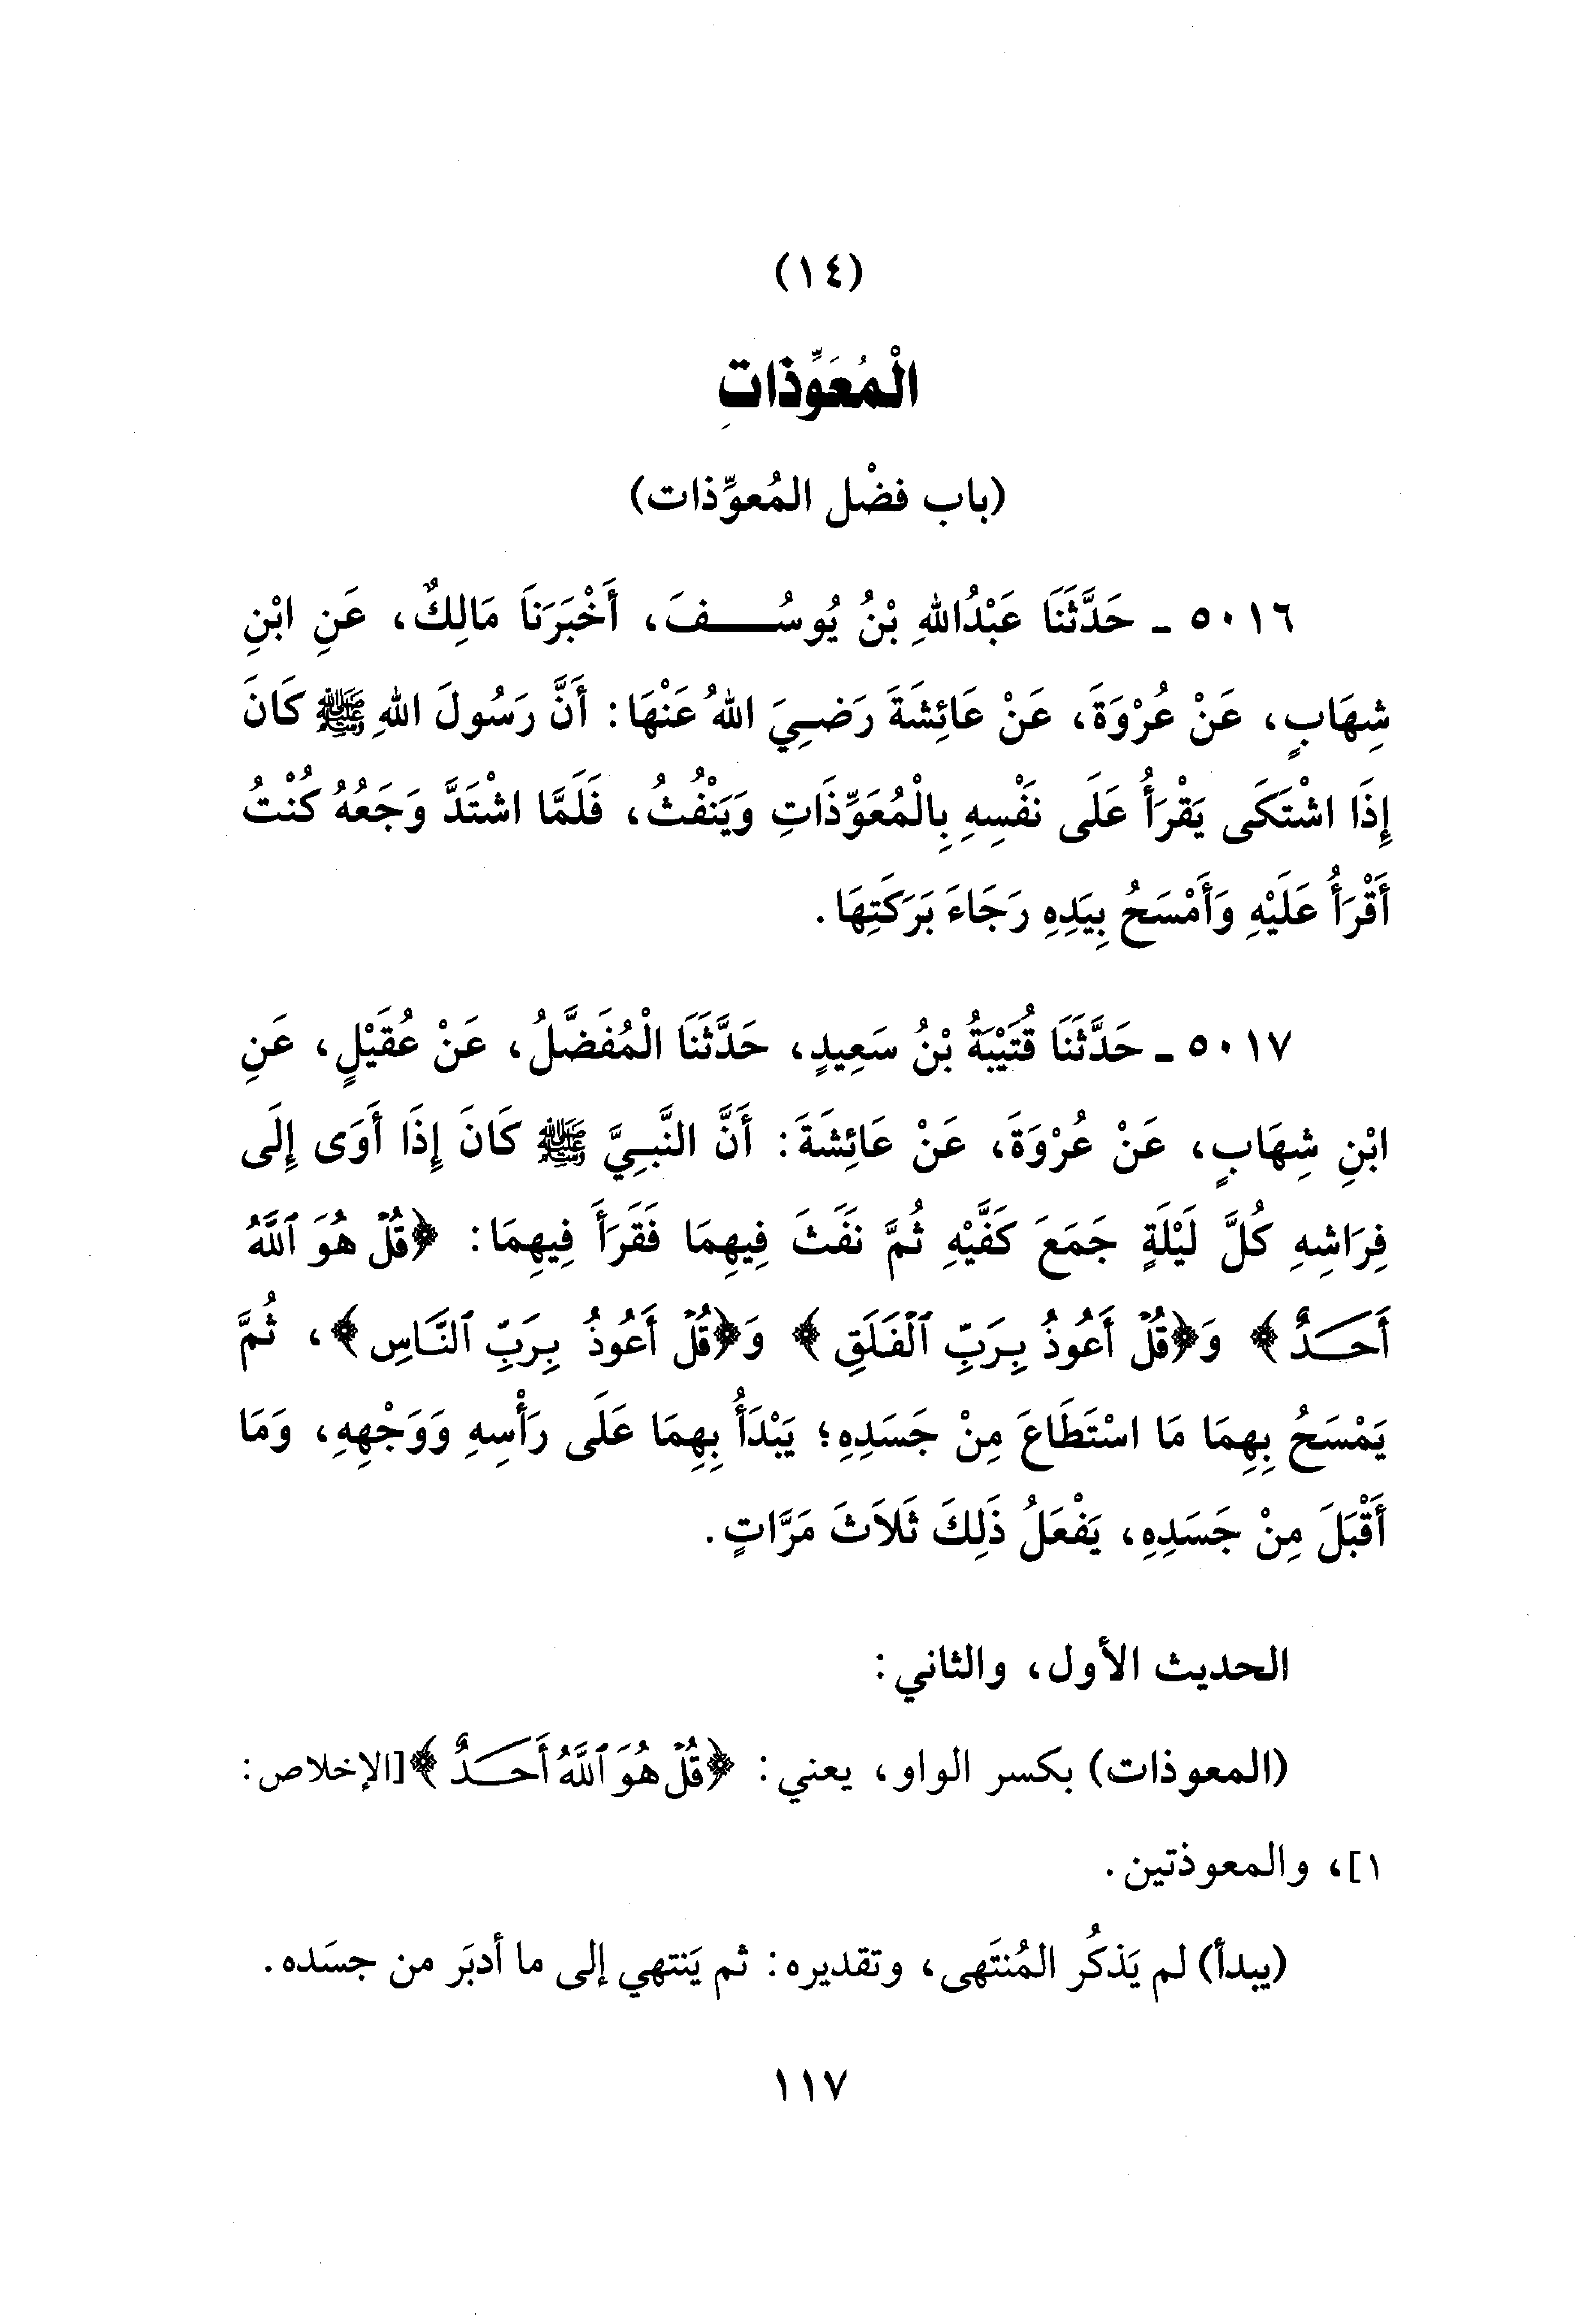 (١٤)
الْمُعَوِّذاتِ
(باب فضْل المُعوِّذات)
٥٠١٦ - حَدَّثَنَا عَبْدُاللهِ بْنُ يُوسُـــفَ، أَخْبَرَنَا مَالِكٌ، عَنِ ابْنِ
شِهَابٍ، عَنْ عُرْوَةَ، عَنْ عَائِشَةَ رَضِيَ اللهُ عَنْهَا: أَنَّ رَسُولَ اللهِ ﷺ كَانَ
إِذَا اشْتَكَى يَقْرَأُ عَلَى نَفْسِهِ بِالْمُعَوِّذَاتِ وَيَنْفُثُ، فَلَمَّا اشْتَدَّ وَجَعُهُ كُنْتُ
أَقْرَأُ عَلَيْهِ وَأَمْسَحُ بِيَدِهِ رَجَاءَ بَرَكَتِهَا.
٥٠١٧ - حَدَّثَنَا قُتَيْبَةُ بْنُ سَعِيدٍ، حَدَّثَنَا الْمُفَضَّلُ، عَنْ عُقَيْلٍ، عَنِ
ابْنِ شِهَابٍ، عَنْ عُرْوَةَ، عَنْ عَائِشَةَ: أَنَّ النَّبِيَّ ﷺ كَانَ إِذَا أَوَى إِلَى
فِرَاشِهِ كُلَّ لَيْلَةٍ جَمَعَ كَفَّيْهِ ثُمَّ نَفَثَ فِيهِمَا فَقَرَأَ فِيهِمَا: ﴿قُلۡ هُوَ ٱللَّهُ
أَحَـــدٌ﴾ وَ﴿قُلۡ أَعُوذُ بِرَبِّ ٱلۡفَلَقِ﴾ وَ﴿قُلۡ أَعُوذُ بِرَبِّ ٱلنَّاسِ﴾، ثُمَّ
يَمْسَحُ بِهِمَا مَا اسْتَطَاعَ مِنْ جَسَدِهِ؛ يَبْدَأُ بِهِمَا عَلَى رَأْسِهِ وَوَجْهِهِ، وَمَا
أَقْبَلَ مِنْ جَسَدِهِ، يَفْعَلُ ذَلِكَ ثَلاَثَ مَرَّاتٍ.
الحديث الأول، والثاني:
(المعوذات) بكسر الواو، يعني: ﴿قُلۡ هُوَ ٱللَّهُ أَحَـــدٌ﴾ [الإخلاص:
١]، والمعوذتين.
(يبدأ) لم يَذكُر المُنتَهى، وتقديره: ثم يَنتهي إلى ما أدبَر من جسَده.
١١٧